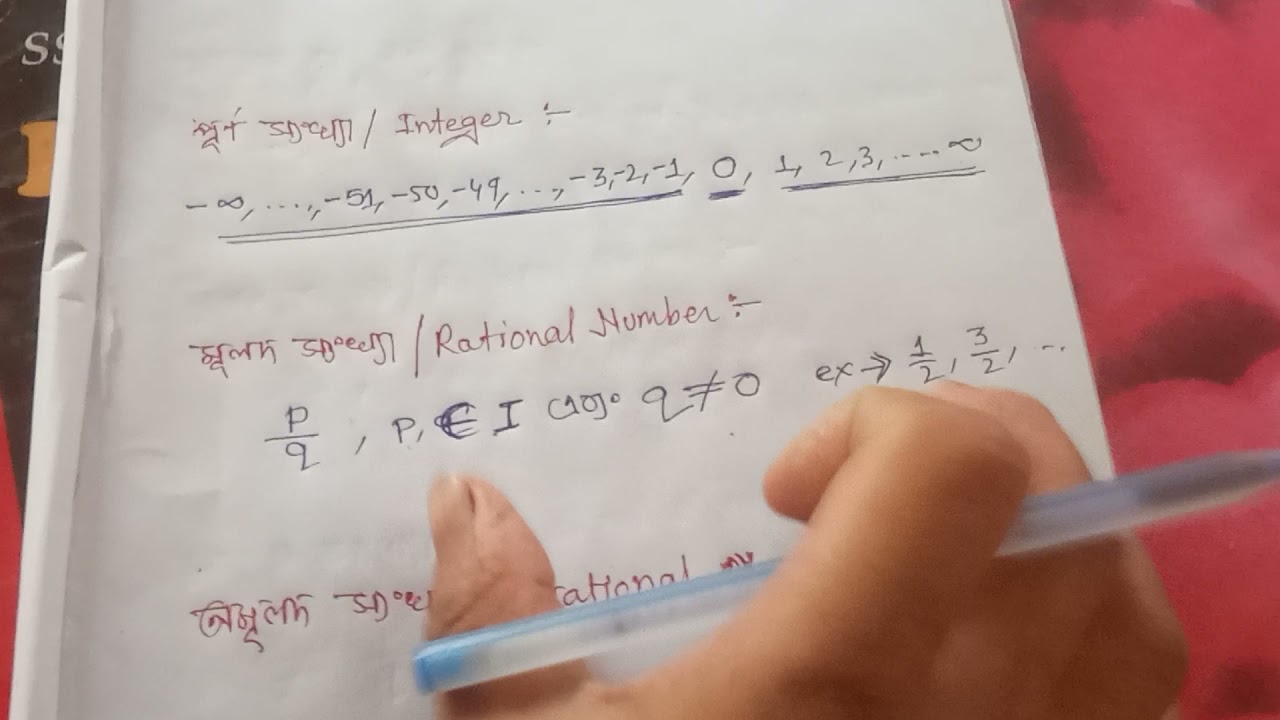 পূর্ণ সংখ্যা / Integer :-
-∞, ...., -51, -50, -49, ..., -3, -2, -1, 0, 1, 2, 3, ..... ∞
মূলদ সংখ্যা / Rational Number :-
p/q , p, ∈ I এবং q ≠ 0 ex → 1/2, 3/2, ...
অমূলদ